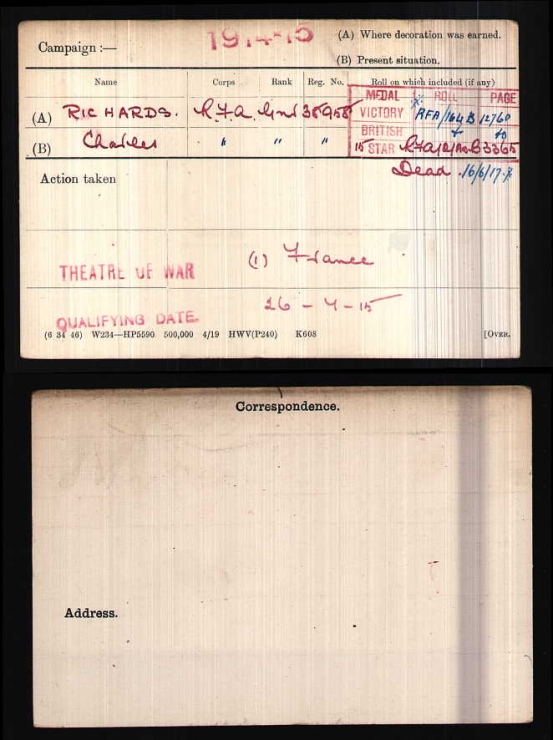 Campaign :—
1914-15
(A) Where decoration was earned.
(B) Present situation.
Name Corps Rank Reg. No. Roll on which included (if any)
MEDAL ROLL PAGE
(A) RICHARDS. R.F.A. Gnr 36958 VICTORY RFA/164B 12760
(B) Charles " " " BRITISH + do
15 STAR
Dead 16/6/17.
Action taken
THEATRE OF WAR (1) France
QUALIFYING DATE. 26 - 4 - 15
(6 34 46) W234—HP5590 500,000 4/19 HWV(P240) K608 [OVER.
Correspondence.
Address.